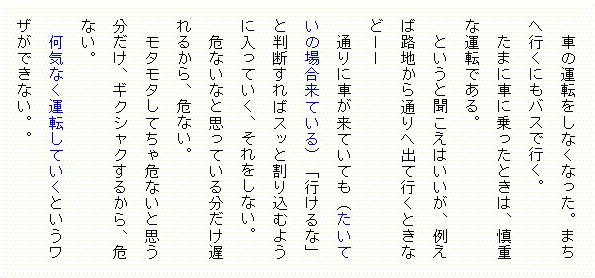 車の運転をしなくなった。まち
へ行くにもバスで行く。
　たまに車に乗ったときは、慎重
な運転である。
　というと聞こえはいいが、例え
ば路地から通りへ出て行くときな
どーー
　通りに車が来ていても（たいて
いの場合来ている）「行けるな」
と判断すればスッと割り込むよう
に入っていく、それをしない。
　危ないなと思っている分だけ遅
れるから、危ない。
　モタモタしてちゃ危ないと思う
分だけ、ギクシャクするから、危
ない。
　何気なく運転していくというワ
ザができない。。